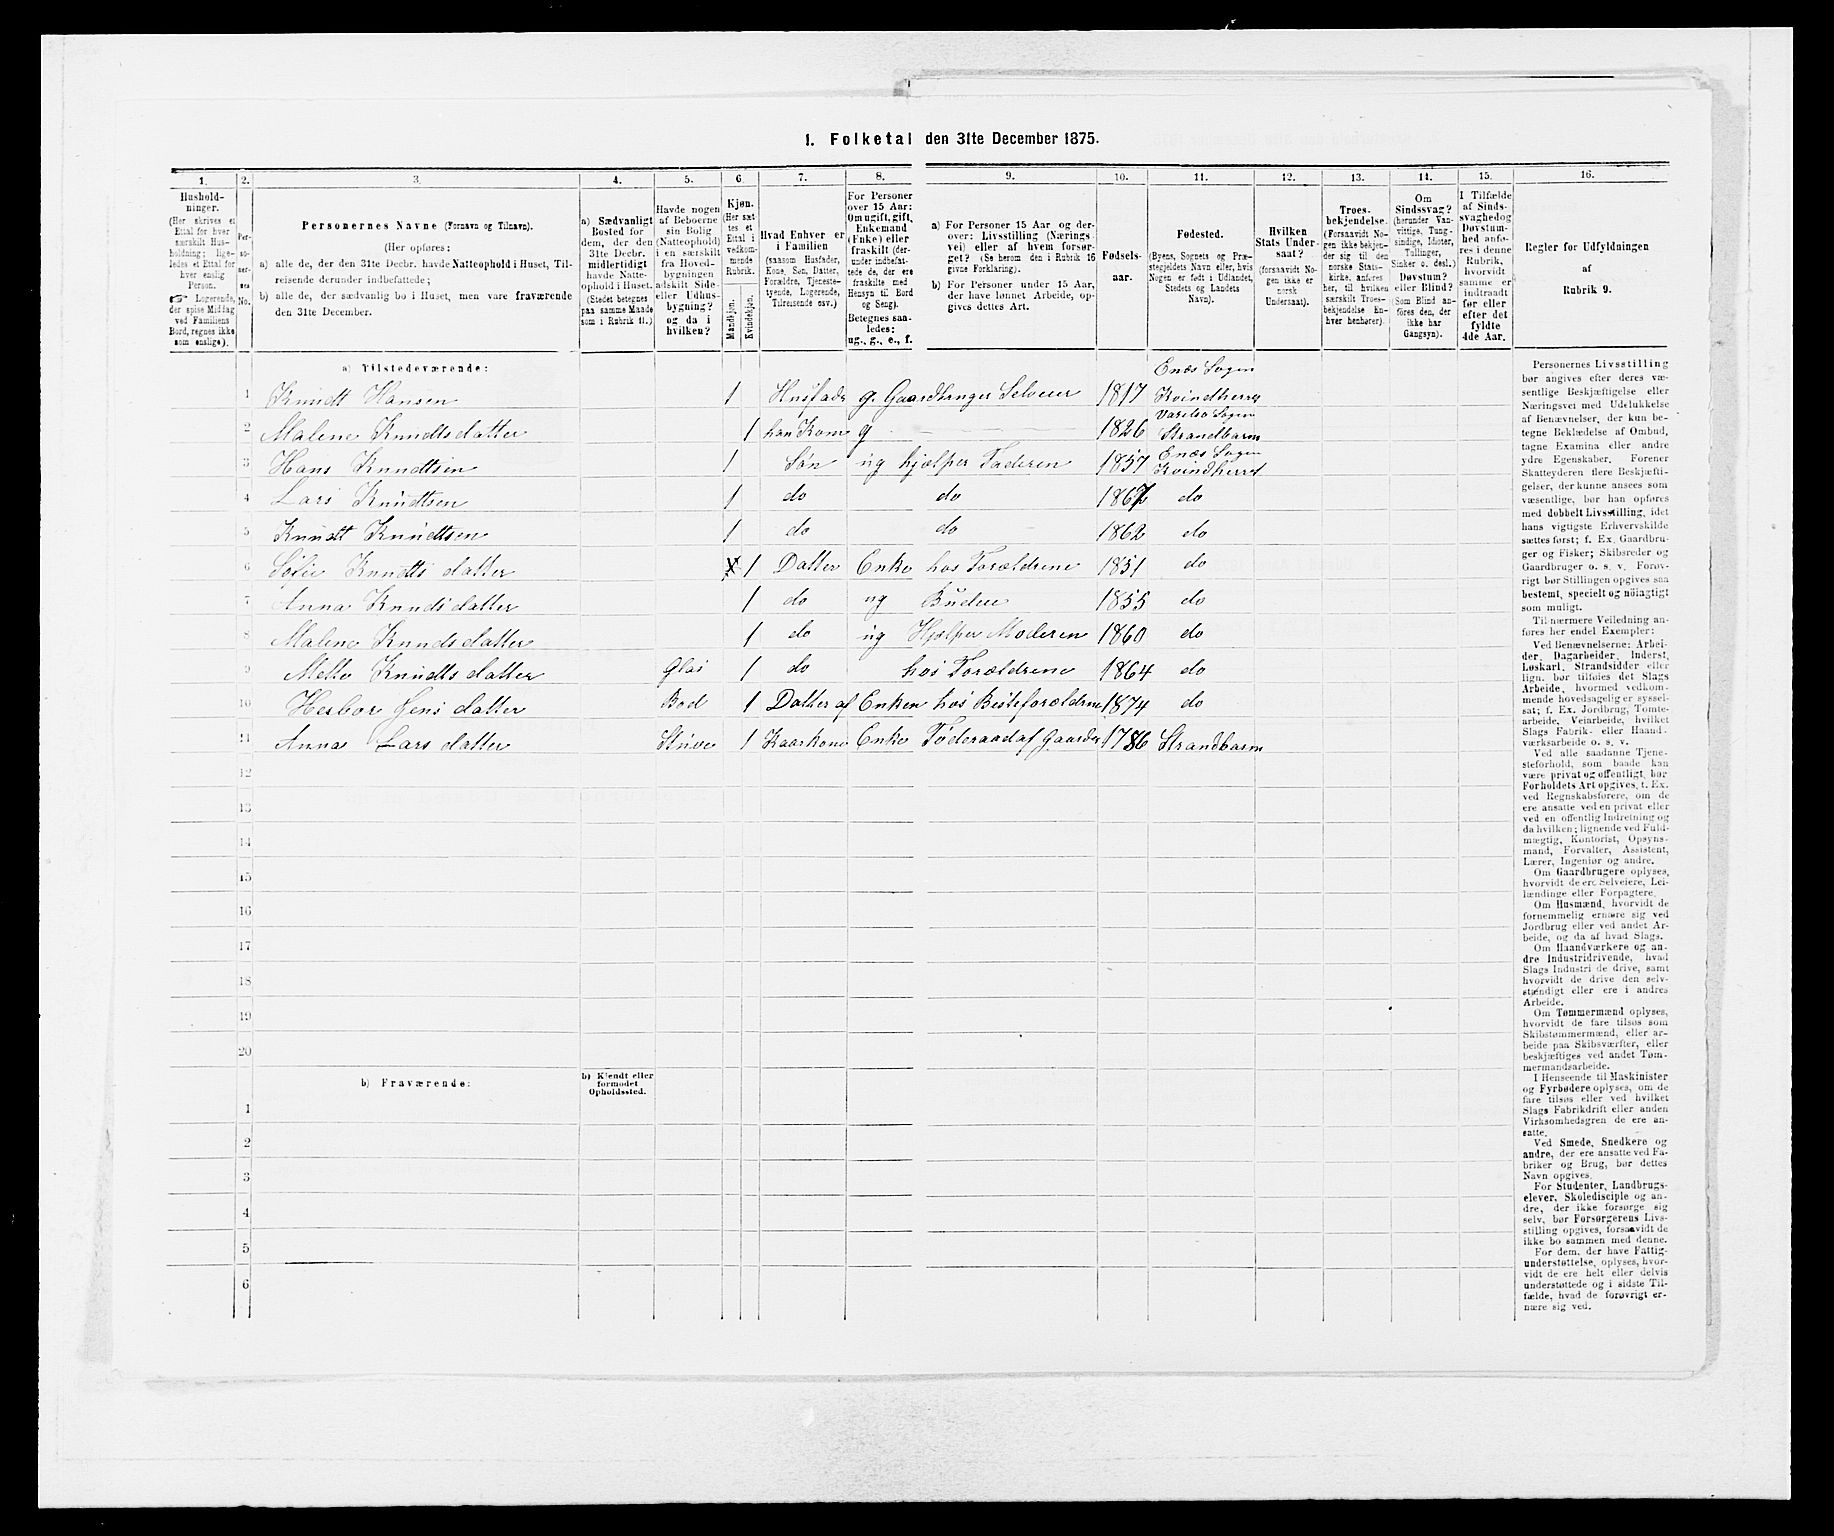 1. Folketal den 31te December 1875.
1. 2. 3. 4. 5. 6. 7. 8. 9. 10. 11. 12. 13. 14. 15. 16.
Hushold-
ninger.
(Her skrives et
Ettal for hver
særskilt Hus-
holdning; lige-
ledes et Ettal for
hver enslig
Person.
☞ Logerende,
der spise Middag
ved Familiens
Bord, regnes ikke
som enslige).
Per-
so-
ner-
nes
No.
Personernes Navne (Fornavn og Tilnavn).
(Her opføres:
a) alle de, der den 31te Decbr. havde Natteophold i Huset, Til-
reisende derunder indbefattede;
b) alle de, der sædvanlig bo i Huset, men vare fraværende
den 31te December.
a) Sædvanligt
Bosted for
dem, der den
31te Decbr.
midlertidigt
havde Natte-
ophold i Huset.
(Stedet betegnes
paa samme Maade
som i Rubrik 11.)
Havde nogen
af Beboerne
sin Bolig
(Natteophold)
i en særskilt
fra Hoved-
bygningen
adskilt Side-
eller Udhus-
bygning?
og da i
hvilken?
Kjøn.
(Her sæt-
tes et
Ettal i
vedkom-
mende
Rubrik.
Mandkjøn.
Kvindekjøn.
Hvad Enhver er
i Familien
(saasom Husfader,
Kone, Søn, Datter,
Forældre, Tjeneste-
tyende, Logerende,
Tilreisende osv.)
For Personer
over 15 Aar:
Om ugift, gift,
Enkemand
(Enke) eller
fraskilt (der-
under indbefat-
tede de, der ere
fraskilte med
Hensyn til Bord
og Seng).
Betegnes saa-
ledes:
ug., g., e., f.
a) For Personer 15 Aar og der-
over: Livsstilling (Nærings-
vei) eller af hvem forsør-
get? (Se herom den i Rubrik 16
givne Forklaring).
b) For Personer under 15 Aar,
der have lønnet Arbeide, op-
gives dettes Art.
Fødsels-
aar.
Fødested.
(Byens, Sognets og Præ-
stegjeldets Navn eller, hvis
Nogen er født i Udlandet,
Stedets og Landets
Navn).
Hvilken
Stats Under-
saat?
(forsaavidt No-
gen ikke er
norsk
Undersaat).
Troes-
bekjendelse.
(Forsaavidt No-
gen ikke bekjen-
der sig til den
norske Stats-
kirke, anføres
her, til hvilken
særskilt Troes-
bekjendelse En-
hver henhører).
Om
Sindssvag?
(herunder Van-
vittige, Tung-
sindige, Idioter,
Tullinger,
Sinker o. desl.)
Døvstum?
eller Blind?
(Som Blind an-
føres den, der
ikke har
Gangsyn).
I Tilfælde
af Sinds-
svaghed og
Døvstum-
hed anfø-
res i denne
Rubrik,
hvorvidt
samme er
indtraadt
før eller
efter det
fyldte
4de Aar.
Regler for Udfyldningen
af
Rubrik 9.
a) Tilstedeværende:
Enæs Sogen
1 Knudt Hansen 1 Husfader g. Gaardbruger Selveier 1817 Kvindherret
Sogen
2 Malene Knudtsdatter 1 hans Kone g 1826 Strandbarm
Enæs Sogen
3 Hans Knudtsen 1 Søn ug hjælper Faderen 1857 Kvindherret
4 Lars Knudtsen 1 do do 1867 do
5 Knudt Knudtsen 1 do do 1862 do
6 Sofie Knudts datter X 1 Datter Enke hos Forældrene 1851 do
7 Anna Knuds datter 1 do ug Budeie 1855 do
8 Malene Knuds datter 1 do ug Hjælper Moderen 1860 do
9 Mette Knudts datter Glas 1 do hos Forældrene 1864 do
10 Herbor Jens datter Bod 1 Datter af Enken hos Besteforældrene 1874 do
11 Anna Lars datter Stuve 1 Kaarkone Enke Føderaad af Gaarden 1786 Strandbarm
12
13
14
15
16
17
18
19
20
b) Fraværende:
b) Kjendt eller
formodet
Opholdssted.
1
2
3
4
5
6
Personernes Livsstilling
bør angives efter deres væ-
sentlige Beskjæftigelse eller
Næringsvei med Udelukkelse
af Benævnelser, der kun be-
tegne Beklædelse af Ombud,
tagne Examina eller andre
ydre Egenskaber. Forener
Skatteyderen flere Beskjæfti-
gelser, der kunne ansees som
væsentlige, bør han opføres
med dobbelt Livsstilling, idet
hans vigtigste Erhvervskilde
sættes først; f. Ex. Gaardbru-
ger og Fisker; Skibsreder og
Gaardbruger o. s. v. Forøv-
rigt bør Stillingen opgives saa
bestemt, specielt og nöiagtigt
som muligt.
Til nærmere Veiledning an-
føres her endel Exempler:
Ved Benævnelserne: Arbei-
der, Dagarbeider, Inderst,
Løskarl, Strandsidder eller
lign. bør tilføies det Slags
Arbeide, hvormed vedkom-
mende hovedsagelig er syssel-
sat; f. Ex. Jordbrug, Tomte-
arbeide, Veiarbeide, hvilket
Slags Fabrik- eller Haand-
værksarbeide o. s. v.
Ved alle saadanne Tjene-
steforhold, som baade kan
være privat og offentligt, bør
Forholdets Art opgives, t. Ex.
ved Regnskabsførere, om de
ere ansatte ved en privat eller
ved en offentlig Indretning og
da hvilken; lignende ved Fuld-
mægtig, Kontorist, Opsyns-
mand, Forvalter, Assistent,
Lærer, Ingeniør og andre.
Om Gaardbrugere oplyses,
hvorvidt de ere Selveiere, Lei-
lændinge eller Forpagtere.
Om Husmænd, hvorvidt de
fornemmelig ernære sig ved
Jordbrug eller ved andet Ar-
beide, og da af hvad Slags.
Om Haandværkere og an-
dre Industridrivende, hvad
Slags Industri de drive, samt
hvorvidt de drive den selv-
stændigt eller ere i andres
Arbeide.
Om Tømmermænd oplyses,
hvorvidt de fare tilsøs som
Skibstømmermænd, eller ar-
beide paa Skibsværfter, eller
beskjæftiges ved andet Tøm-
mermandsarbeide.
I Henseende til Maskinister
og Fyrbødere oplyses, om de
fare tilsøs eller ved hvilket
Slags Fabrikdrift eller anden
Virksomhedsgren de ere an-
satte.
Ved Smede, Snedkere og
andre, der ere ansatte ved Fa-
briker og Brug, bør dettes
Navn opgives.
For Studenter, Landbrugs-
elever, Skoledisciple og an-
dre, der ikke forsørge sig
selv, bør Forsørgerens Livs-
stilling opgives, forsaavidt de
ikke bo sammen med denne.
For dem, der have Fattig-
understøttelse, oplyses, hvor-
vidt de ere helt eller delvis
understøttede og i sidste Til-
fælde, hvad de forøvrigt er-
nære sig ved.